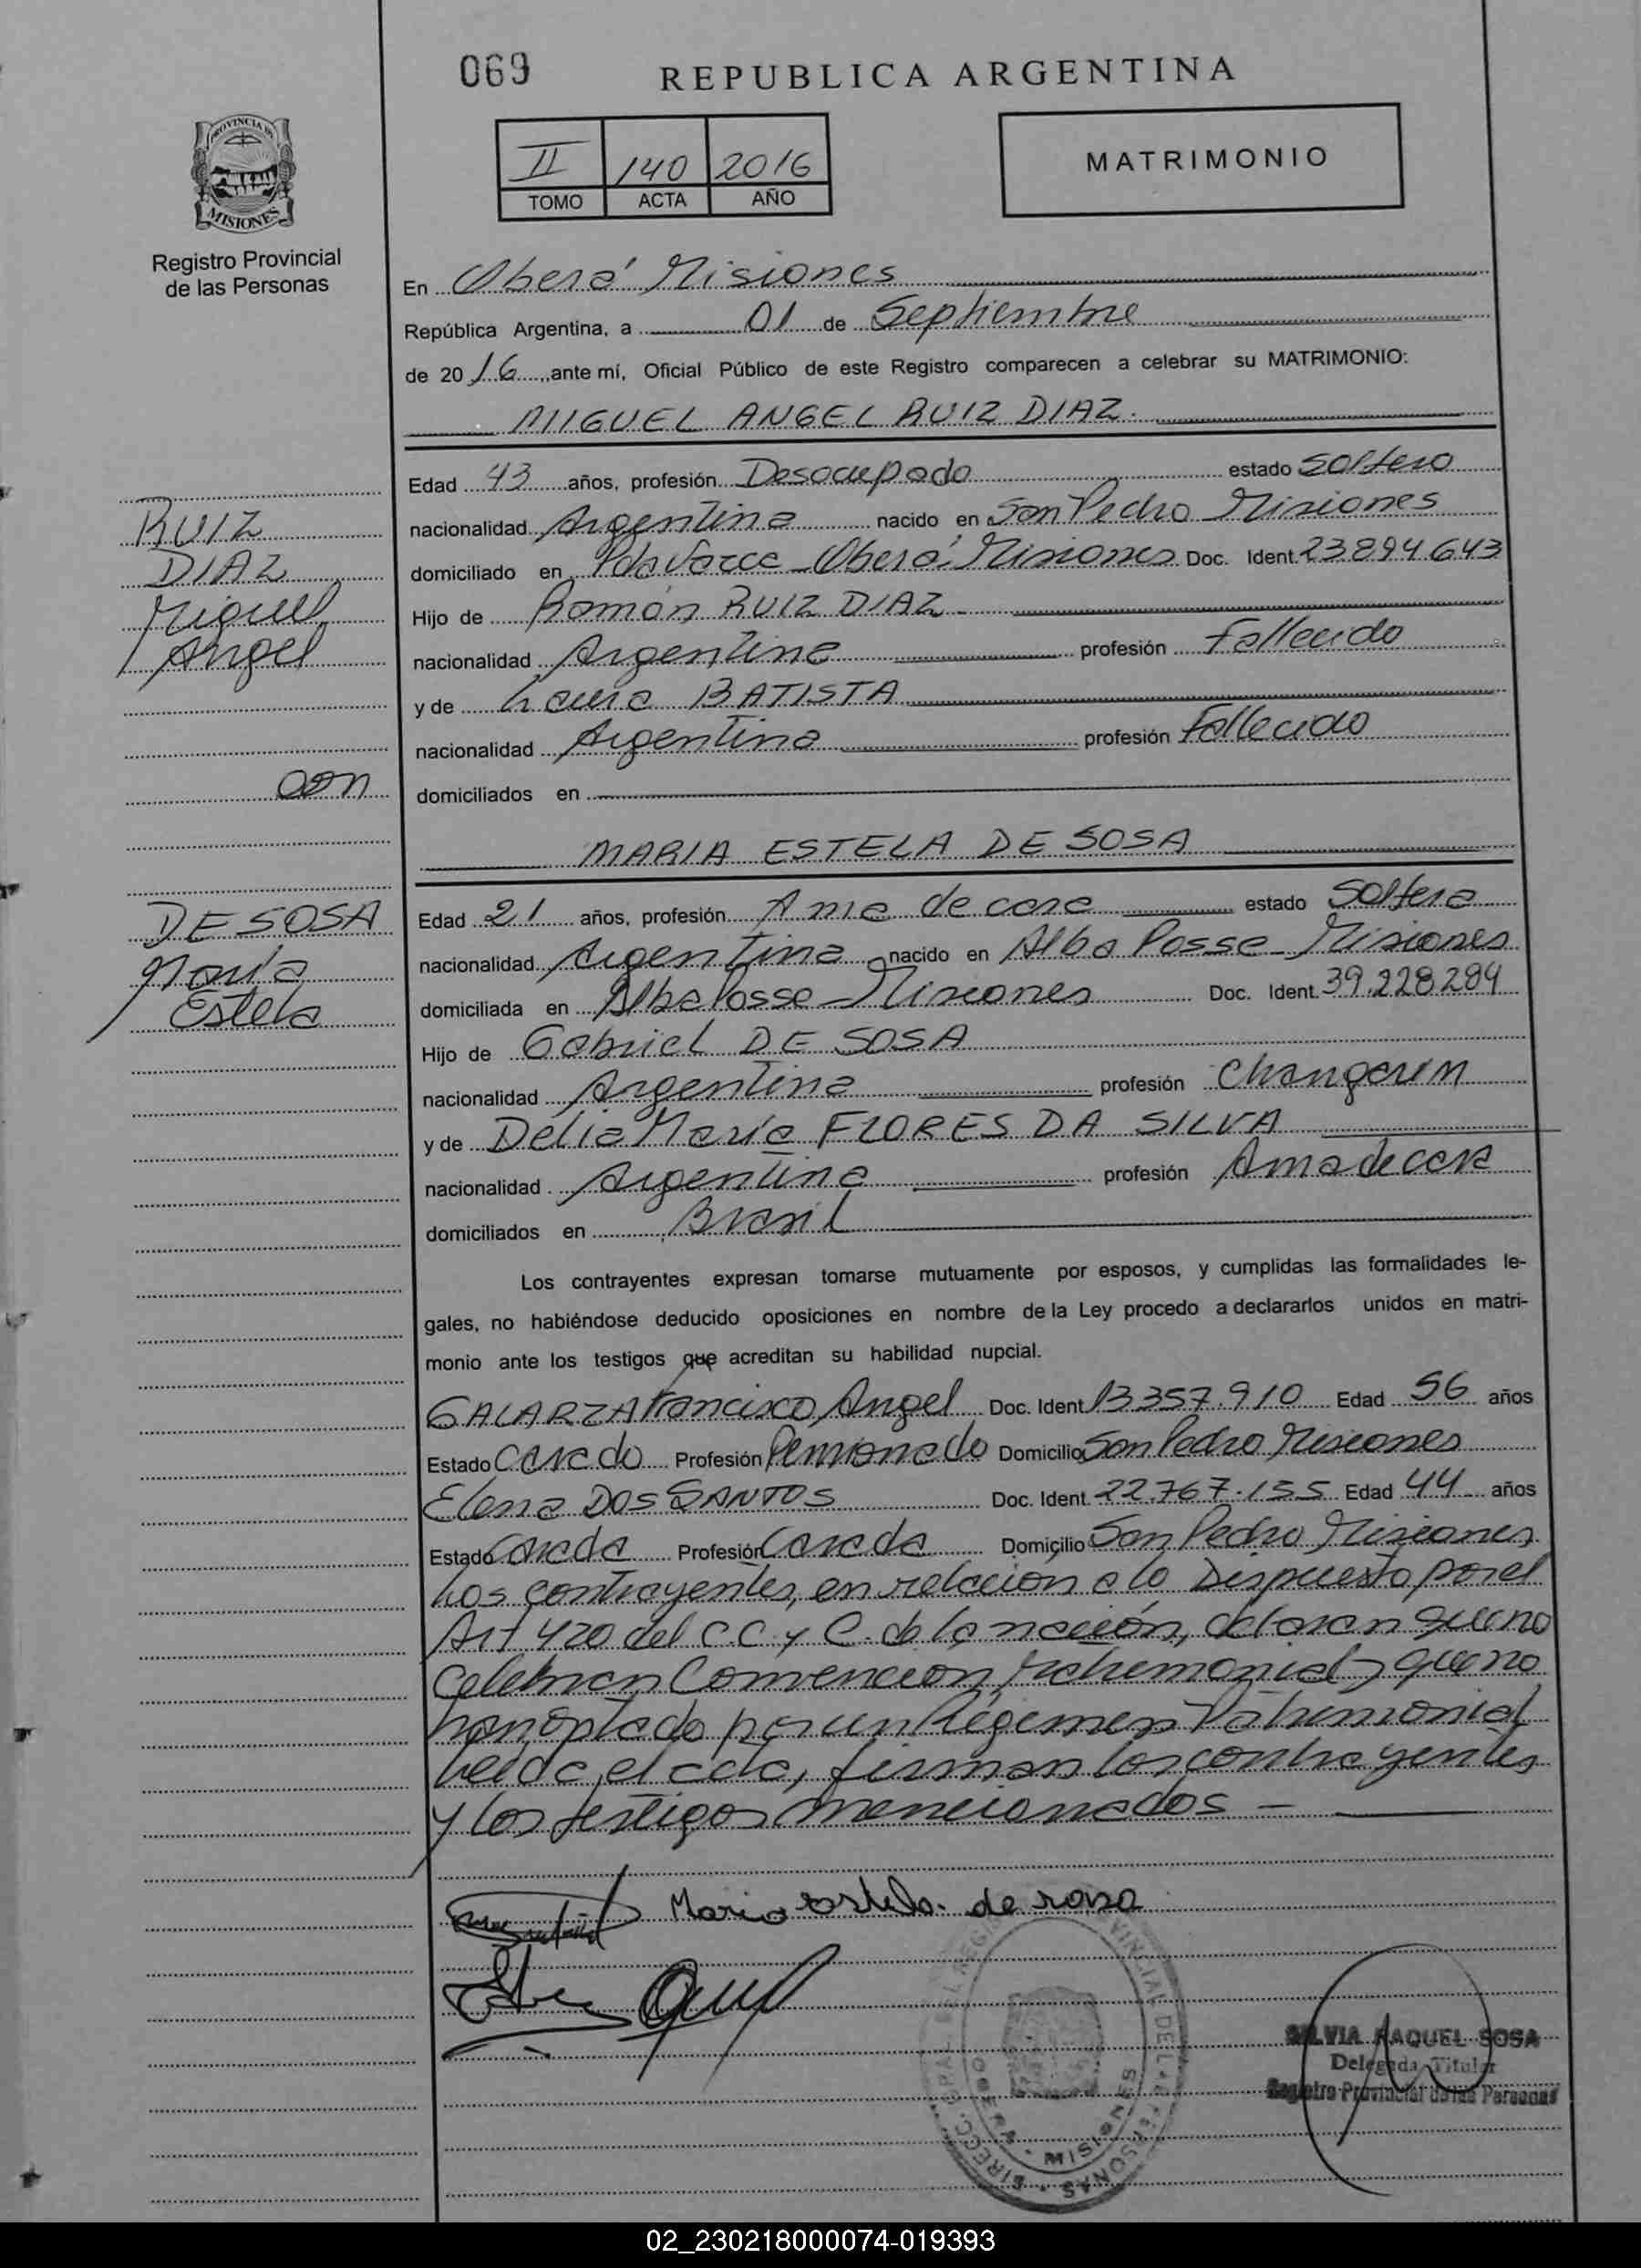 069
REPUBLICA ARGENTINA
PROVINCIA DE
MISIONES
Registro Provincial
de las Personas
II 140 2016
TOMO ACTA AÑO
MATRIMONIO
En Oberá Misiones
República Argentina, a 01 de Septiembre
de 2016, ante mí, Oficial Público de este Registro comparecen a celebrar su MATRIMONIO:
MIGUEL ANGEL RUIZ DIAZ.
RUIZ
DIAZ
Miguel
Angel
Edad 43 años, profesión Desocupado estado soltero
nacionalidad Argentina nacido en San Pedro Misiones
domiciliado en Oberá, Misiones Doc. Ident. 23.894.643
Hijo de Ramón RUIZ DIAZ
nacionalidad Argentina profesión Fallecido
y de Laura BATISTA
nacionalidad Argentina profesión Fallecido
domiciliados en
con
MARIA ESTELA DE SOSA
DE SOSA
María
Estela
Edad 21 años, profesión Ama de casa estado Soltera
nacionalidad Argentina nacido en Alba Posse Misiones
domiciliada en Alba Posse - Misiones Doc. Ident. 39.228.284
Hijo de Gabriel DE SOSA
nacionalidad Argentina profesión Changarin
y de Delia María FLORES DA SILVA
nacionalidad Argentina profesión Ama de casa
domiciliados en Brasil
Los contrayentes expresan tomarse mutuamente por esposos, y cumplidas las formalidades le-
gales, no habiéndose deducido oposiciones en nombre de la Ley procedo a declararlos unidos en matri-
monio ante los testigos que acreditan su habilidad nupcial.
GALARZA Francisco Angel Doc. Ident 13.357.910 Edad 56 años
Estado Casado Profesión Pensionado Domicilio San Pedro Misiones
Elena DOS SANTOS Doc. Ident. 22.767.155 Edad 44 años
Estado Casada Profesión Casada Domicilio San Pedro Misiones
Los contrayentes, en relacion a lo Dispuesto por el
Art 420 del C.C. y C. de la nación, declaran que no
celebran Convencion Patrimonial y que no
han optado por un Regimen Patrimonial
leida el acta, firman los contrayentes
y los testigos mencionados -
Maria estela de sosa
SILVIA RAQUEL SOSA
Delegada Titular
Registro Provincial de las Personas
OBERA - MISIONES
02_230218000074-019393